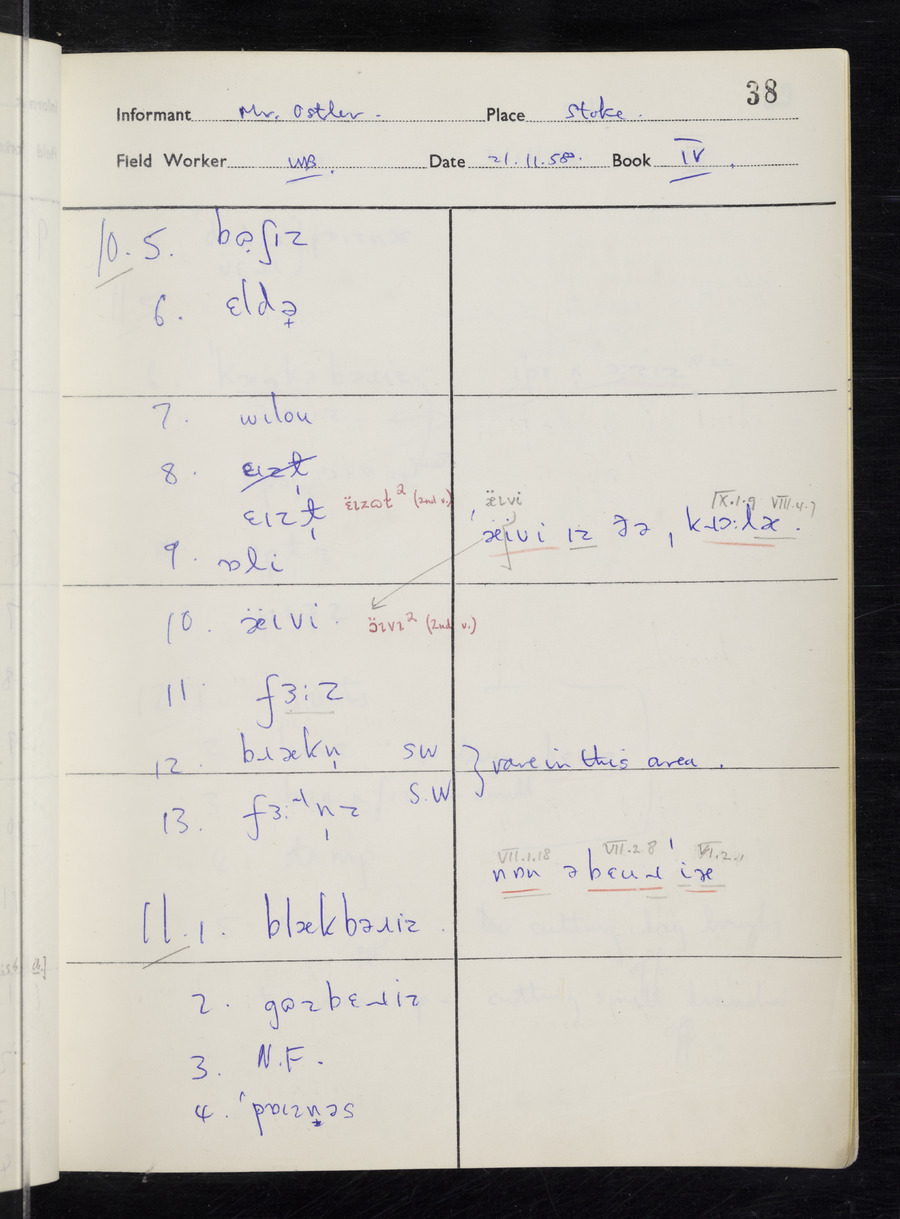 38
Informant Mr. Ostler. Place Stoke.
Field Worker WB. Date 21.11.58. Book IV.
10.5. bə̣ʃɪz
6. ɛldə̟
7. wɪloʊ
8. ɛɪzt̩
ɛɪzt̩ ɛ̈ɪzət² (2nd v.)
9. ɒli
æ̈ɪvi
IX.1.9 VIII.4.7
æ̈ɪvi ɪz ðə, kɹɔ:lə.
10. æ̈ɪvi. ɔ̈ɪvɪ² (2nd v.)
11. fɜ:z
12. bɹækn̩ SW
13. fɜ:ɹnz S.W
} rare in this area.
VII.1.18 VII.2.8 VI.2.1
nɒn əbɛuɹ 'iə
11.1. blækbəɹiz.
2. gɒzbɛɹiz
3. N.F.
4. 'pɒɪzn̩əs